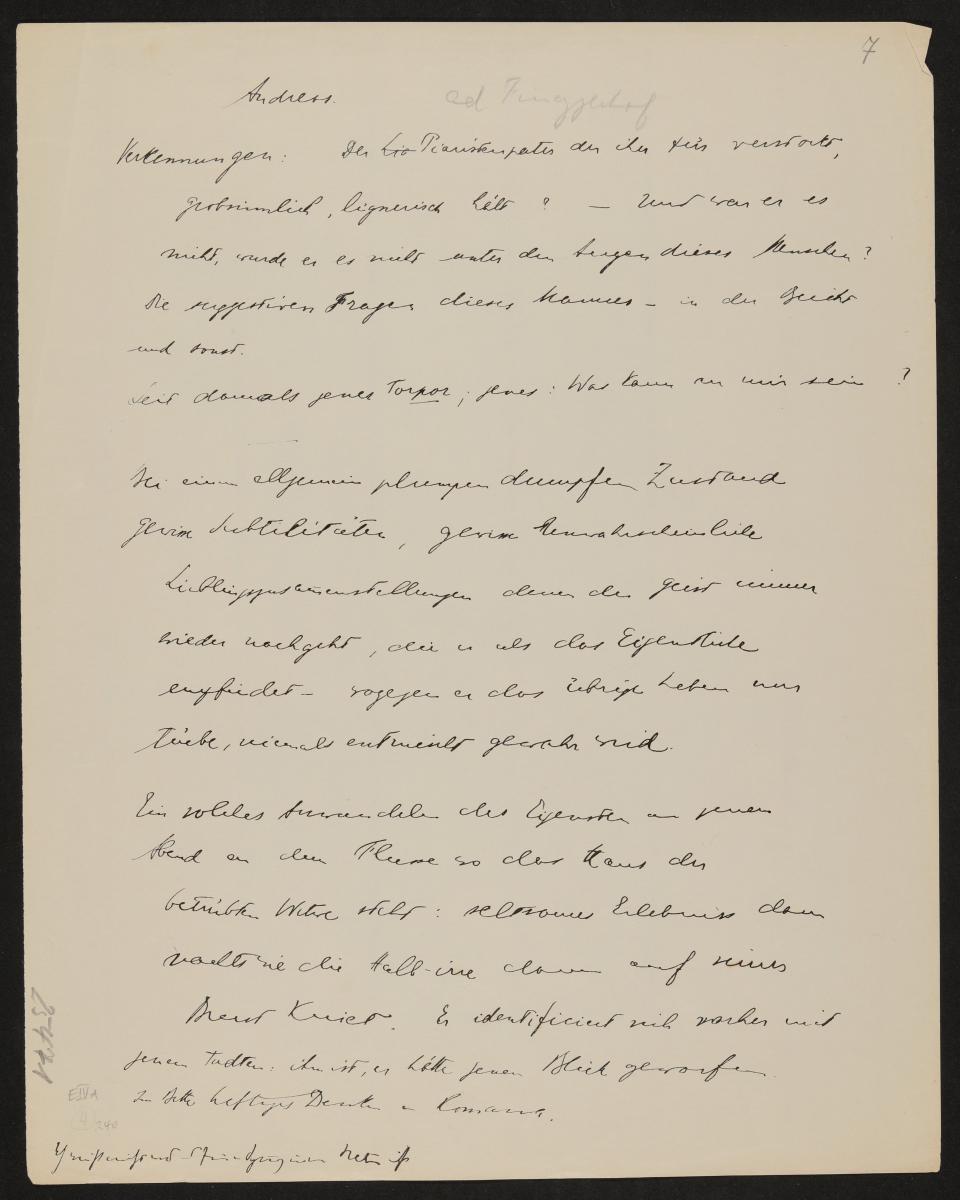 7
Andreas.
ad Finazzerhof
Verkennungen: Der Pia Piaristenpater der ihn für verstockt,
grobsinnlich, lügnerisch hält? — Und war er es
nicht, wurde er es nicht unter den Augen dieses Menschen?
Die suggestiven Fragen dieses Mannes – in der Beichte
und sonst.
Seit damals jener Torpor; jenes: Was kann an mir sein?
Bei einem allgemein plumpen dumpfen Zustand
gewisse Subtilitäten, gewisse unwahrscheinliche
Lieblingszusammenstellungen denen der Geist immer
wieder nachgeht, die er als das Eigentliche
empfindet – wogegen er das übrige Leben nur
trübe, niemals entmischt gewahr wird.
Ein solches Anwandeln des Eigensten an jenem
Abend an dem Flusse wo das Haus der
betrübten Witwe steht: seltsames Erlebniss dann
nachts wie die Halb-irre dann auf seiner
Brust kniet. Er identificiert sich vorher mit
jenem Todten: ihm ist, er hätte jenen Blick geworfen.
Im Bette heftiges Denken an Romana.
E IV A
4/240